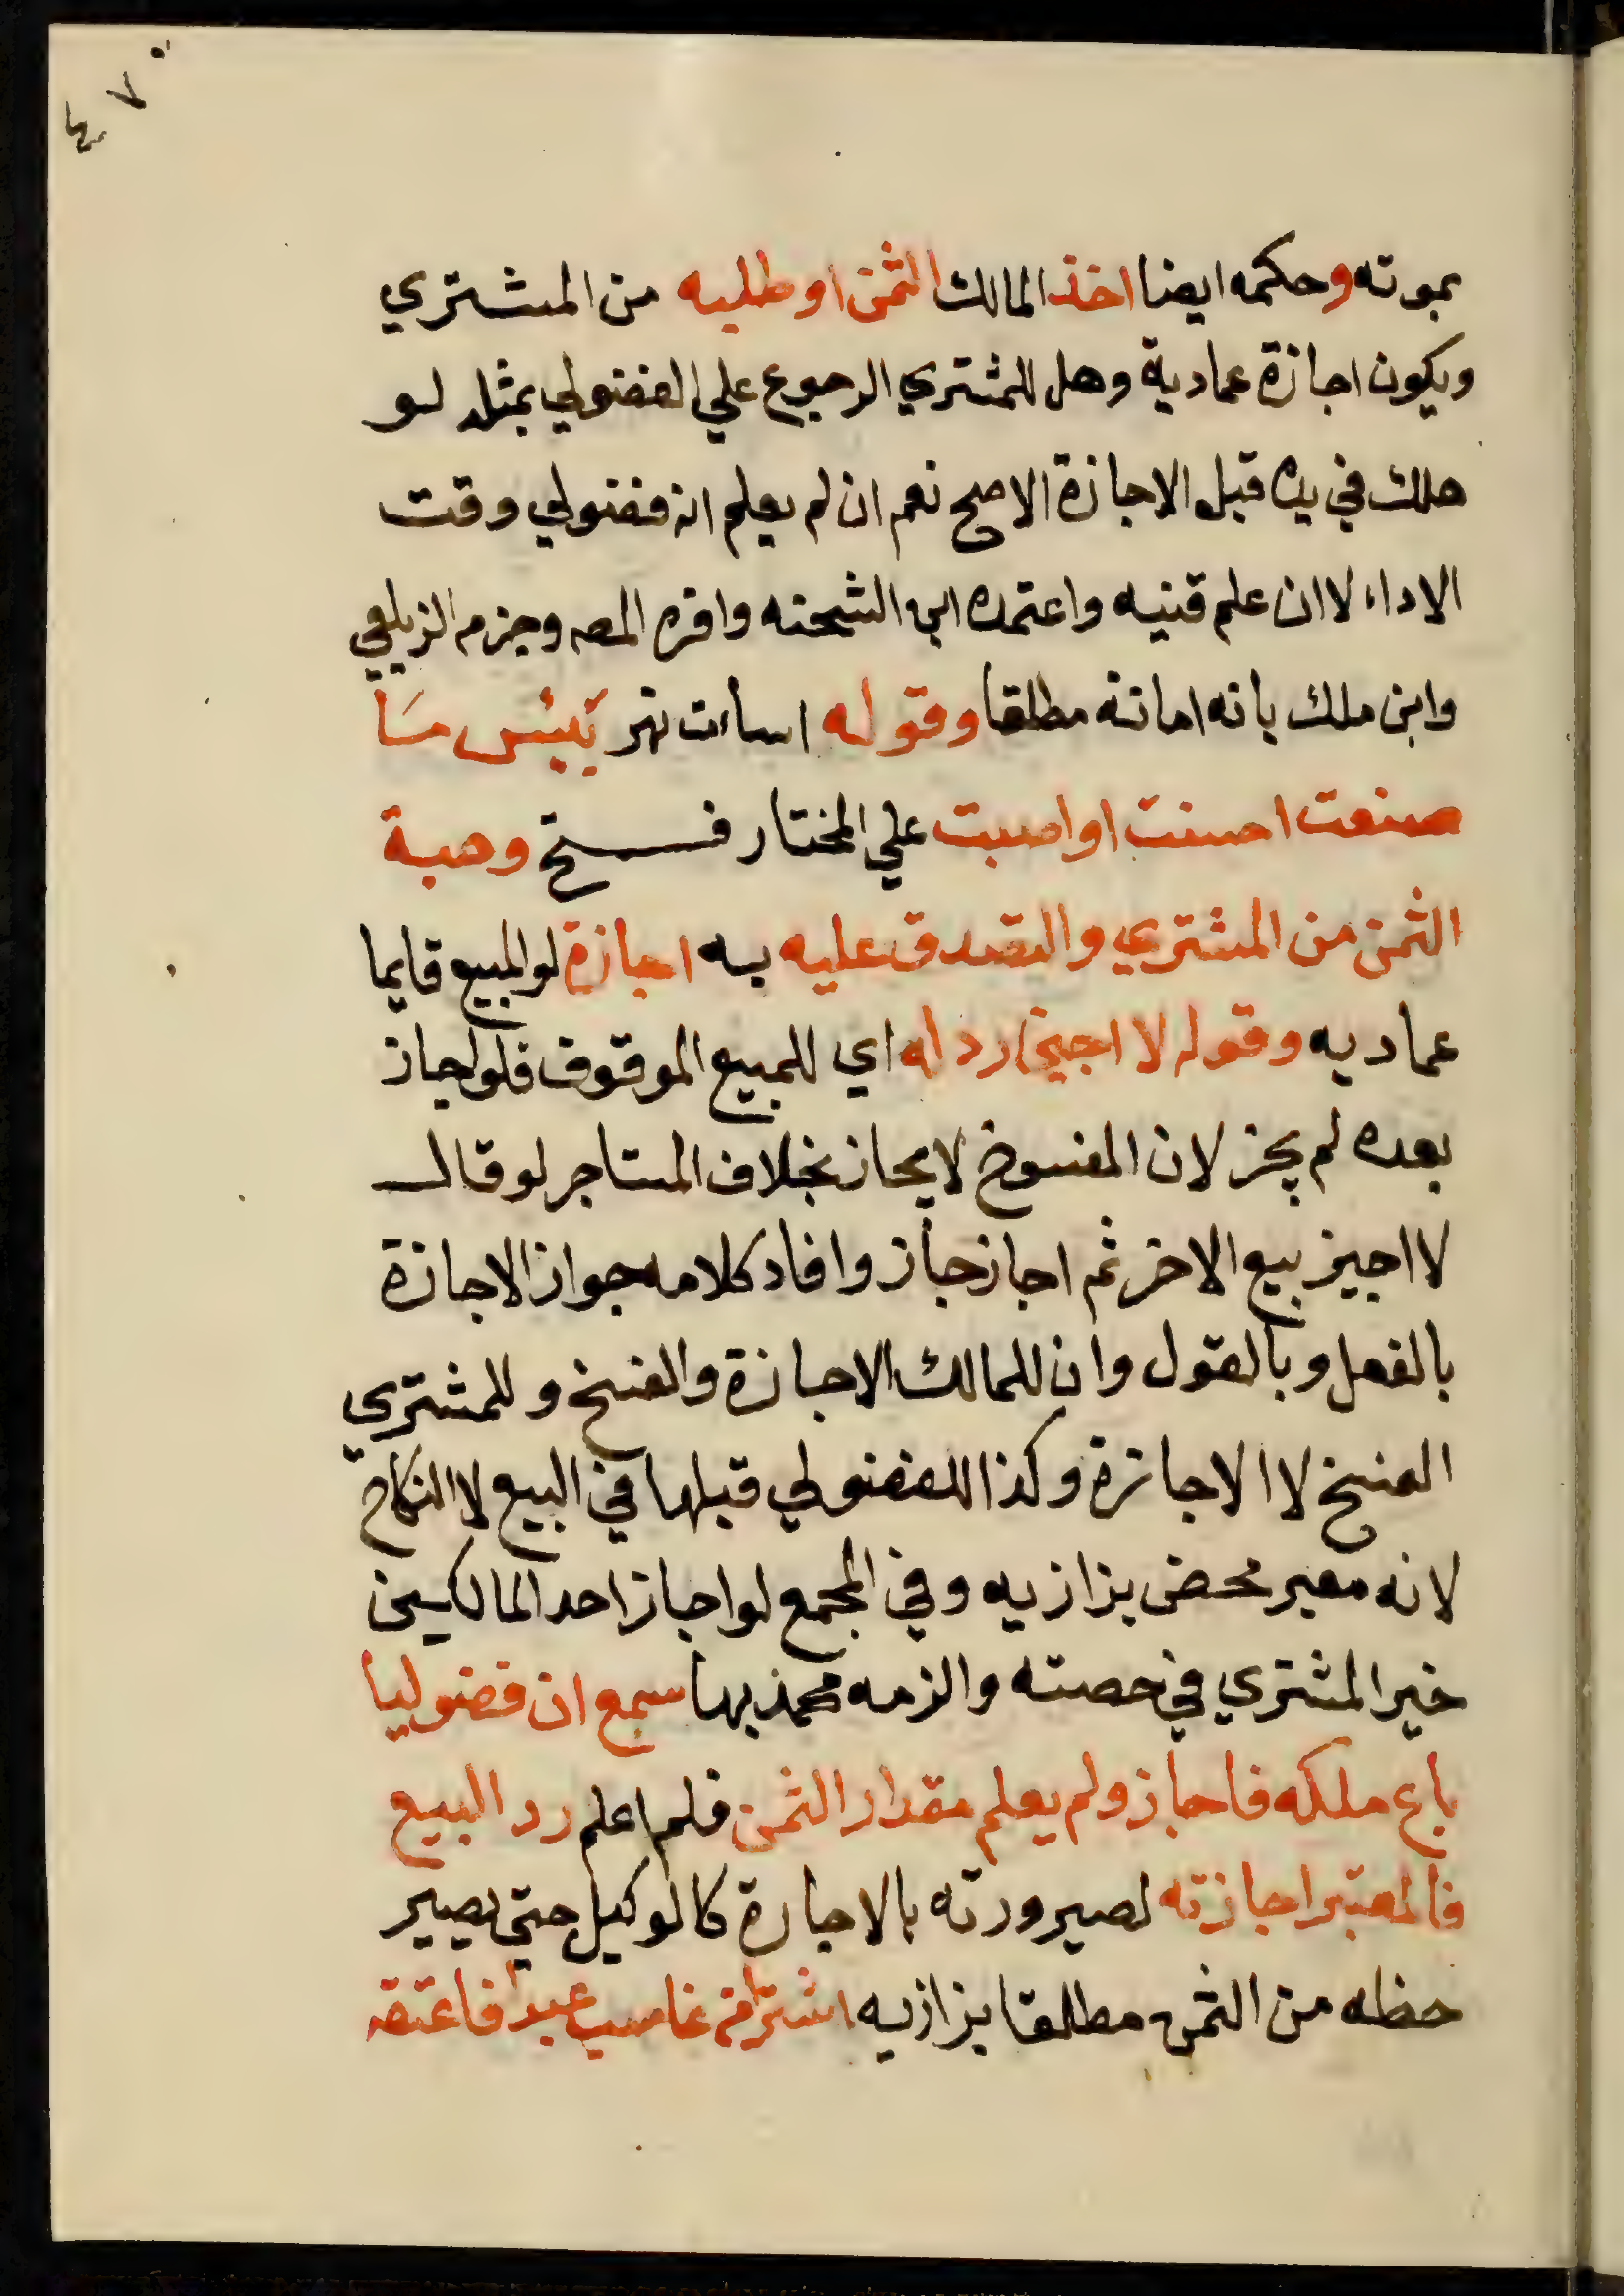 بموته وحكمه ايضا اخذ المالك الثمن او طلبه من المشتري
ويكون اجازة عمادية وهل للمشتري الرجوع علي الفضولي بمثله لو
هلك في يده قبل الاجازة الاصح نعم ان لم يعلم انه فضولي وقت
الاداء لا ان علم قنيه واعتمده ابن الشحنه واقره المصه وجزم الزيلعي
وابن ملك بانه امانة مطلقا وقوله اسات نهر بئس مسا
صنعت احسنت او اصبت علي المختار فتح وهبة
الثمن من المشتري والتصدق عليه به اجازة لو المبيع قايما
عماديه وقوله لا اجيز رد له اي للمبيع الموقوف فلو اجاز
بعده لم يجز لان المفسوخ لا يجاز بخلاف المستاجر لو قال
لا اجيز بيع الاخر ثم اجاز جاز وافاد كلامه جواز الاجازة
بالفعل وبالقول وان للمالك الاجازة والفسخ وللمشتري
الفسخ لا الاجازة وكذا للفضولي قبلها في البيع لا النكاح
لانه معبر محض بزازيه وفي المجمع لو اجاز احد المالكين
خير المشتري في حصته والزمه محمد بها سمع ان فضوليا
باع ملكه فاجاز ولم يعلم مقدار الثمن فلما علم رد البيع
فالمعتبر اجازته لصيرورته بالاجازة كالوكيل حتي يصير
حطه من الثمن مطلقا بزازيه اشترا من غاصب عبدا فاعتقه